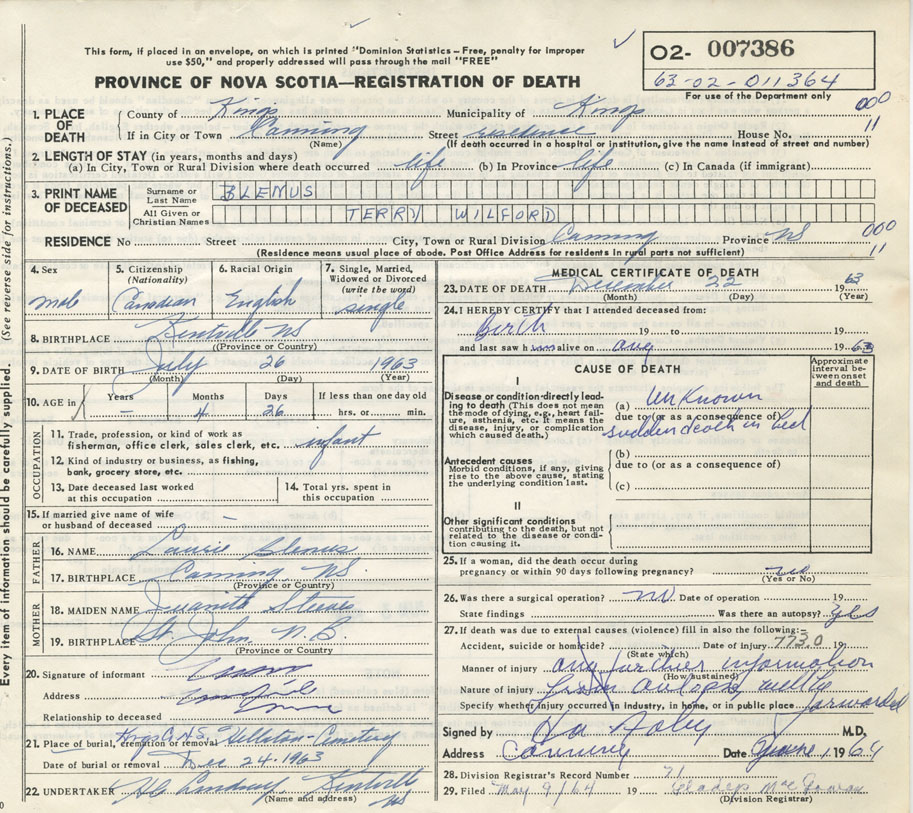 This form, if placed in an envelope, on which is printed "Dominion Statistics – Free, penalty for improper
use $50," and properly addressed will pass through the mail "FREE"
02- 007386
63-02-011364
For use of the Department only
PROVINCE OF NOVA SCOTIA—REGISTRATION OF DEATH
1. PLACE OF DEATH
County of Kings Municipality of Kings 000
If in City or Town Canning Street residence House No. 11
(Name) (If death occurred in a hospital or institution, give the name instead of street and number)
2. LENGTH OF STAY (in years, months and days)
(a) In City, Town or Rural Division where death occurred life (b) In Province life (c) In Canada (if immigrant)
3. PRINT NAME OF DECEASED
Surname or Last Name BLENUS
All Given or Christian Names TERRY WILFORD
000
RESIDENCE No Street City, Town or Rural Division Canning Province NS 11
(Residence means usual place of abode. Post Office Address for residents in rural parts not sufficient)
4. Sex male
5. Citizenship (Nationality) Canadian
6. Racial Origin English
7. Single, Married, Widowed or Divorced (write the word) single
8. BIRTHPLACE Kentville NS
(Province or Country)
9. DATE OF BIRTH July 26 1963
(Month) (Day) (Year)
10. AGE in Years – Months 4 Days 26 If less than one day old hrs. or min.
OCCUPATION
11. Trade, profession, or kind of work as fisherman, office clerk, sales clerk, etc. infant
12. Kind of industry or business, as fishing, bank, grocery store, etc.
13. Date deceased last worked at this occupation
14. Total yrs. spent in this occupation
15. If married give name of wife or husband of deceased –
FATHER
16. NAME Laurie Blenus
17. BIRTHPLACE Canning NS.
(Province or Country)
MOTHER
18. MAIDEN NAME Juanita Steeves
19. BIRTHPLACE St. John N.B.
(Province or Country
20. Signature of informant
Address
Relationship to deceased
21. Place of burial, cremation or removal Kings Co. N.S. Cemetery
Date of burial or removal Dec 24. 1963
22. UNDERTAKER Kentville NS
(Name and address)
MEDICAL CERTIFICATE OF DEATH
23. DATE OF DEATH December 22 1963
(Month) (Day) (Year)
24. I HEREBY CERTIFY that I attended deceased from:
Birth 19 to 19
and last saw h im alive on Aug 19 63
CAUSE OF DEATH
Approximate interval between onset and death
I
Disease or condition directly leading to death (This does not mean the mode of dying, e.g., heart failure, asthenia, etc. It means the disease, injury, or complication which caused death.)
(a) Unknown
due to (or as a consequence of)
sudden death in bed
Antecedent causes
Morbid conditions, if any, giving rise to the above cause, stating the underlying condition last.
(b)
due to (or as a consequence of)
(c)
II
Other significant conditions
contributing to the death, but not related to the disease or condition causing it.
25. If a woman, did the death occur during
pregnancy or within 90 days following pregnancy?
(Yes or No)
26. Was there a surgical operation? no Date of operation 19
State findings Was there an autopsy? yes
27. If death was due to external causes (violence) fill in also the following:
Accident, suicide or homicide? Date of injury 773.0 19
(State which)
Manner of injury any further information
(How sustained)
Nature of injury from autopsy will be
Specify whether injury occurred in industry, in home, or in public place forwarded
Signed by M.D.
Address Canning Date June 1, 1964
28. Division Registrar's Record Number 71
29. Filed May 9/64 19 Gladys
(Division Registrar)
Every item of information should be carefully supplied. (See reverse side for instructions.)